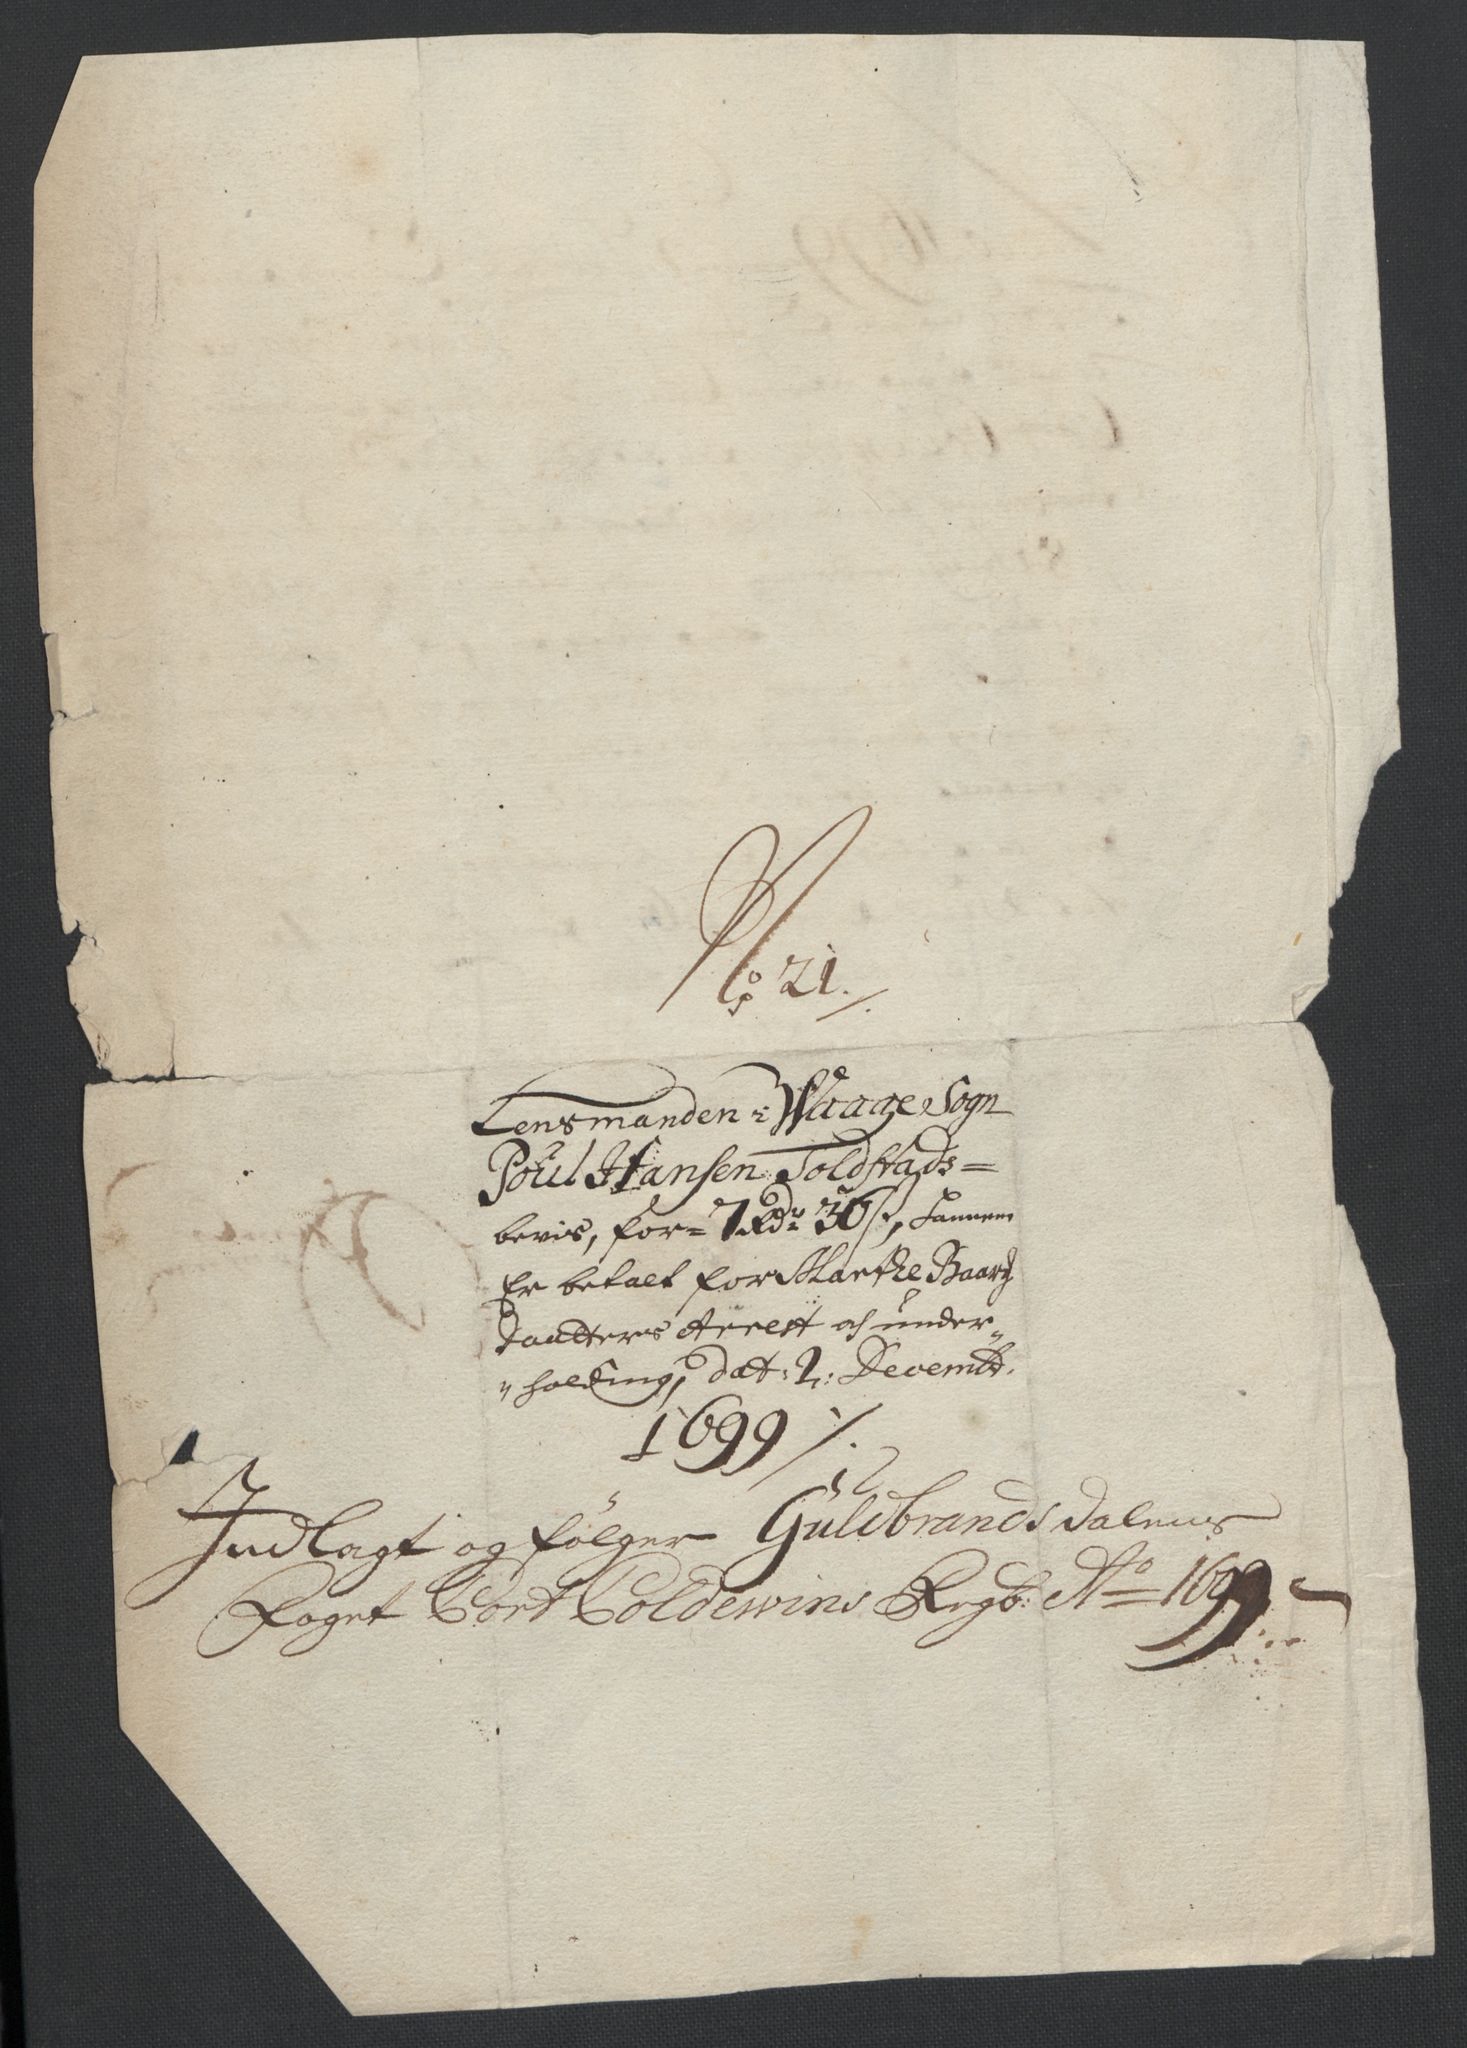 No: 21.
Lensmanden i Waage Sogn
Poul Hansen Toldstads=
bevis, for= 7 Rdr 36 s, hannem
Er betalt for Marthe Baarz
daatters Arrest och under„
„holding, dat: 2: Decemb:
1699 ·/.
Indlagt og følger Guldbrands dalens
Foget Cort Coldewins Regb: Ao 1699